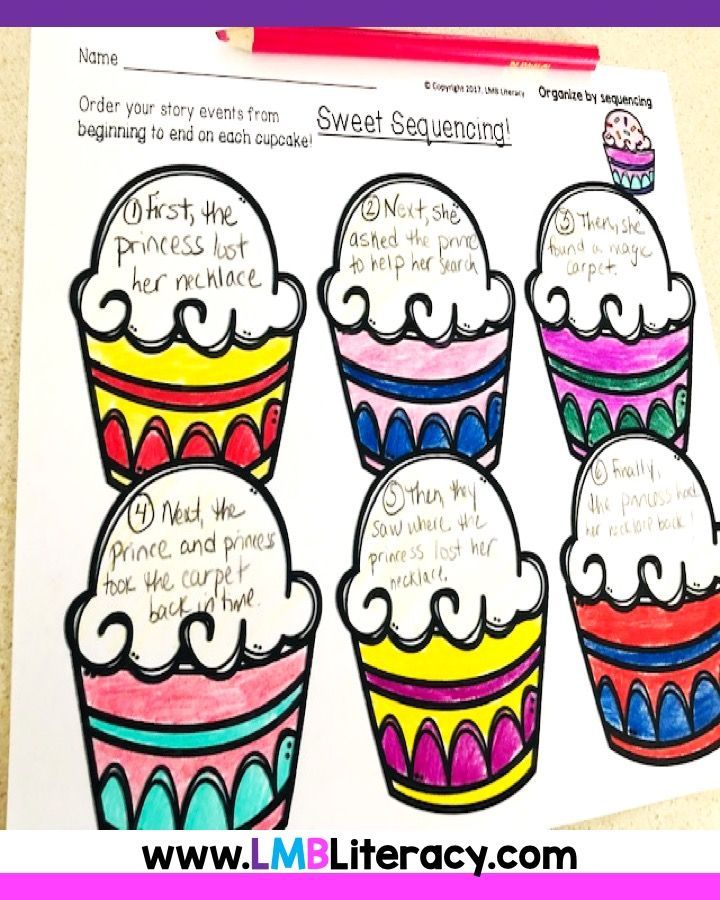 Name
© Copyright 2017, LMB Literacy
Organize by sequencing
Order your story events from
beginning to end on each cupcake!
Sweet Sequencing!
① First, the
princess lost
her necklace
② Next, she
asked the prince
to help her search
③ Then, she
found a magic
carpet.
④ Next, the
prince and princess
took the carpet
back in time.
⑤ Then, they
saw where the
princess lost her
necklace.
⑥ Finally,
the princess had
her necklace back!
www.LMBLiteracy.com